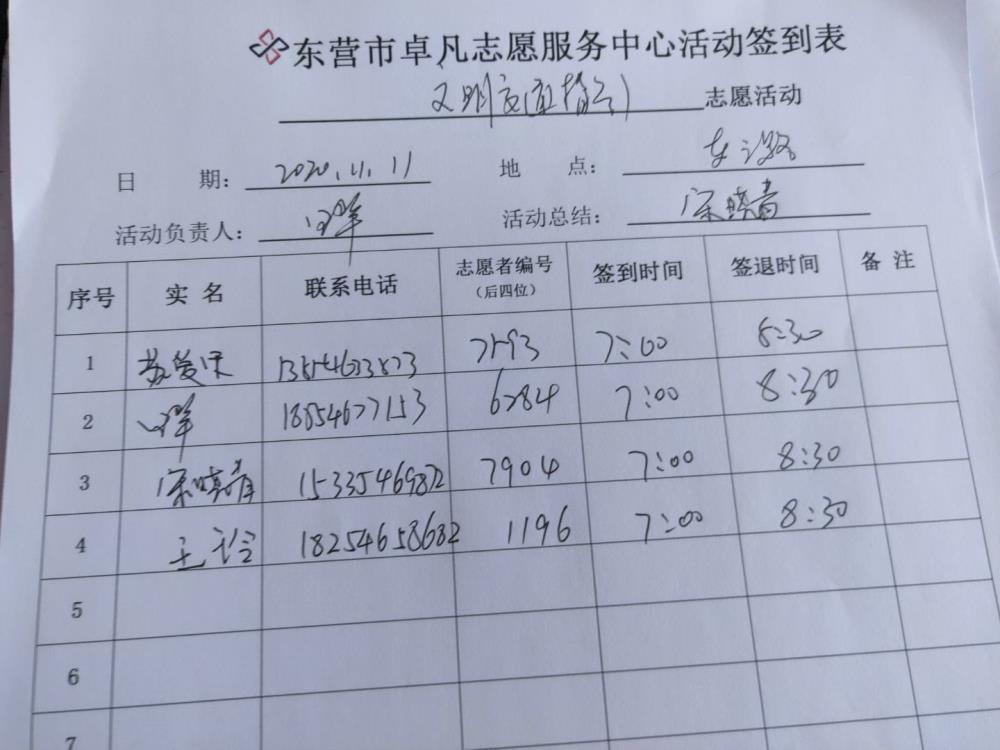 东营市卓凡志愿服务中心活动签到表
文明 志愿活动
日 期： 2020.11.11 地 点：
活动负责人： 活动总结： 宋晓青
序号 实 名 联系电话 志愿者编号（后四位） 签到时间 签退时间 备 注
1 苏爱 7593 7:00 8:30
2 18854677153 6784 7:00 8:30
3 宋晓青 15335469872 7904 7:00 8:30
4 王玲 18254658682 1196 7:00 8:30
5
6
7